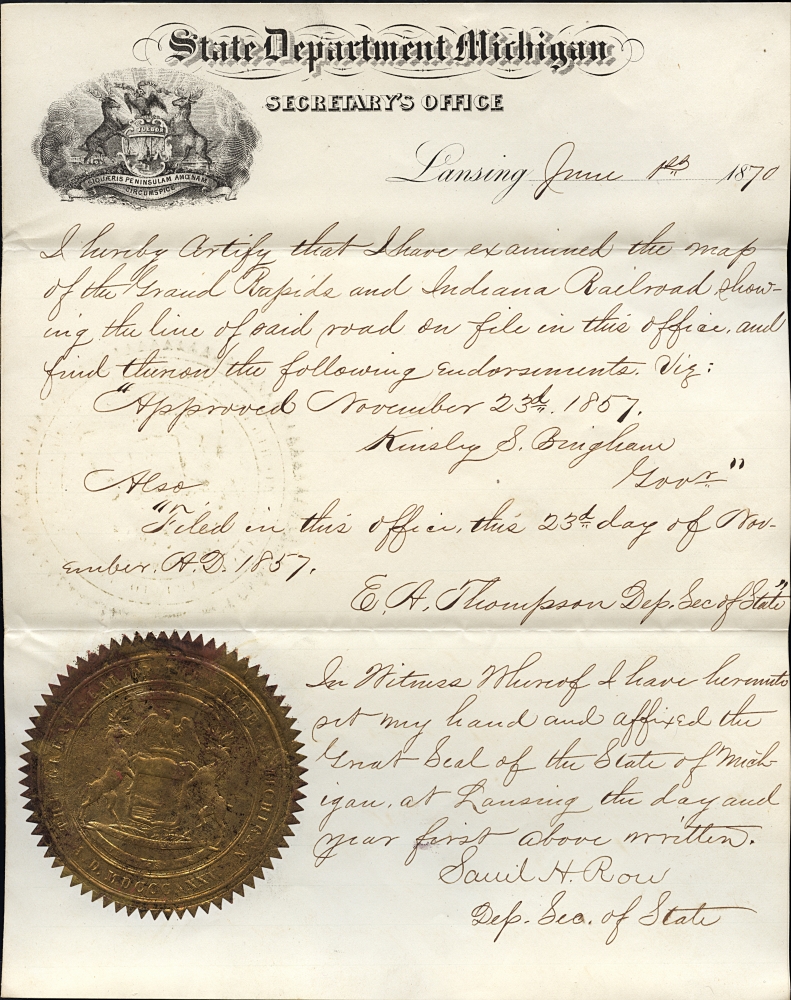 State Department Michigan
SECRETARY'S OFFICE
TUEBOR
SI QUÆRIS PENINSULAM AMŒNAM
CIRCUMSPICE
Lansing June 1st 1870
I hereby Certify that I have examined the map
of the Grand Rapids and Indiana Railroad show-
ing the line of said road on file in this office, and
find thereon the following endorsements. Viz:
"Approved November 23d. 1857.
Kinsley S. Bingham
Govr"
Also
"Filed in this office, this 23d day of Nov-
ember. A.D. 1857.
E. A. Thompson Dep. Sec of State"
In Witness Whereof I have hereunto
set my hand and affixed the
Great Seal of the State of Mich-
igan, at Lansing the day and
year first above written.
Saml H. Row
Dep. Sec. of State